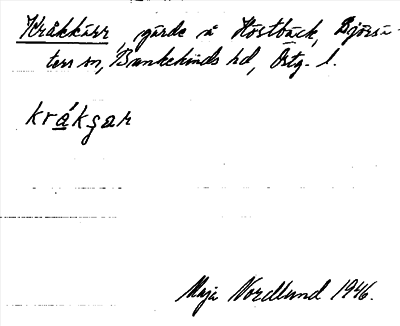 Kråkkärr, gärde å Höstbäck, Björsä-
ters sn, Bankekinds hd, Östg. l.
kråkçar
Maja Nordlund 1946.